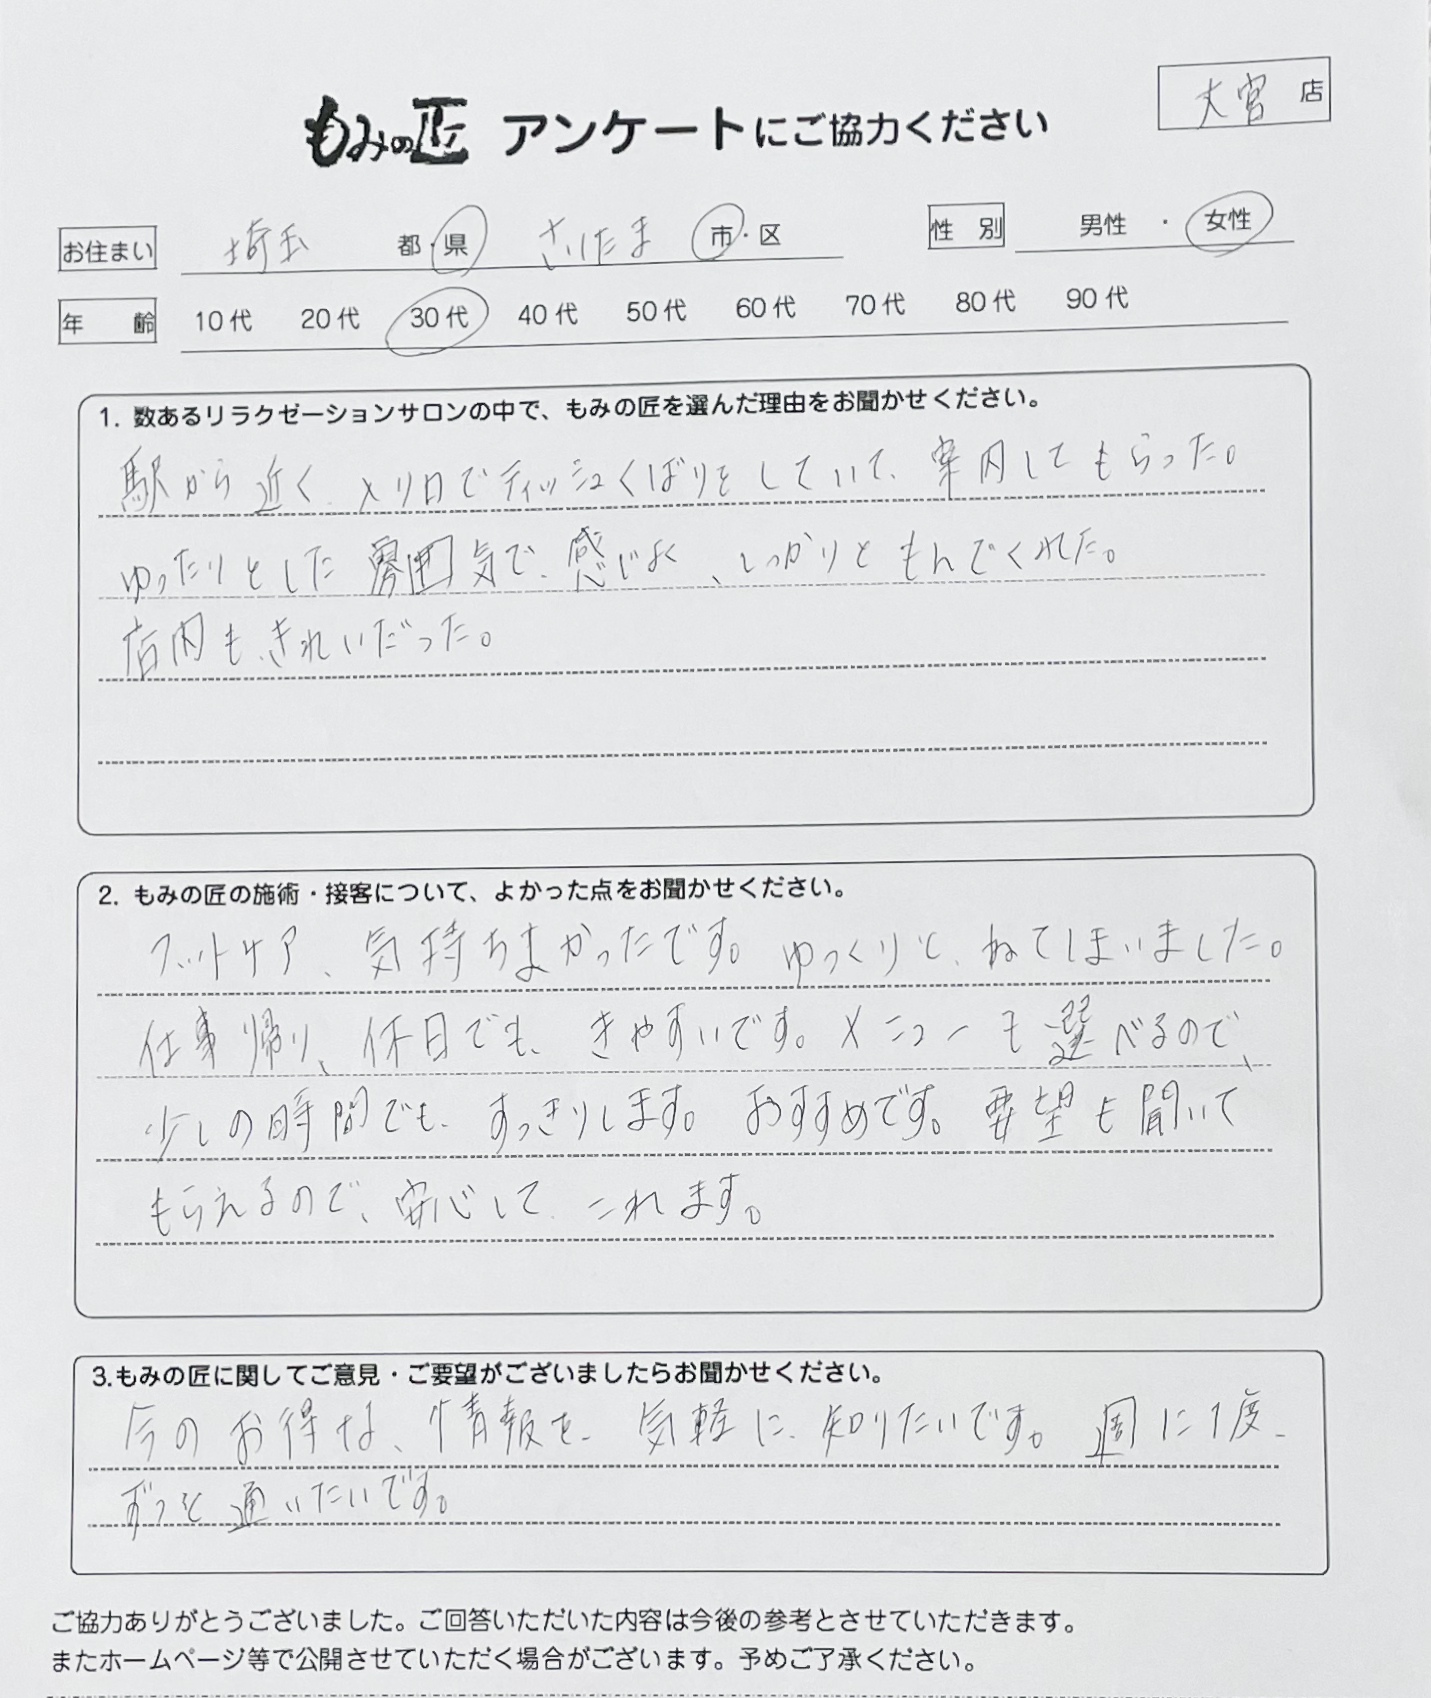 大宮 店
もみの匠 アンケートにご協力ください
お住まい 埼玉 都・県 さいたま 市・区 性 別 男性 ・ 女性
年 齢 10代 20代 30代 40代 50代 60代 70代 80代 90代
1. 数あるリラクゼーションサロンの中で、もみの匠を選んだ理由をお聞かせください。
駅から近く、入り口でティッシュくばりをしていて、案内してもらった。
ゆったりとした雰囲気で、感じよく、しっかりともんでくれた。
店内も、きれいだった。
2. もみの匠の施術・接客について、よかった点をお聞かせください。
フットケア、気持ちよかったです。ゆっくりと、ねてしまいました。
仕事帰り、休日でも、きやすいです。メニューも選べるので、
少しの時間でも、すっきりします。おすすめです。要望も聞いて
もらえるので、安心して、これます。
3.もみの匠に関してご意見・ご要望がございましたらお聞かせください。
今のお得な、情報を、気軽に、知りたいです。週に1度、
ずっと通いたいです。
ご協力ありがとうございました。ご回答いただいた内容は今後の参考とさせていただきます。
またホームページ等で公開させていただく場合がございます。予めご了承ください。